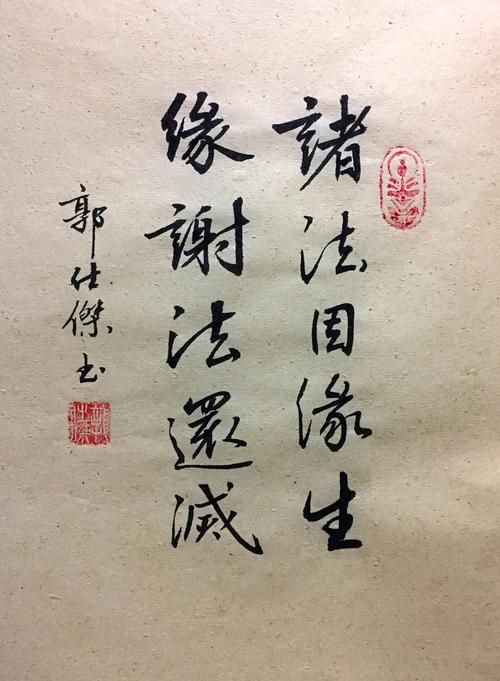 諸法因緣生
緣謝法還滅
郭仕傑书